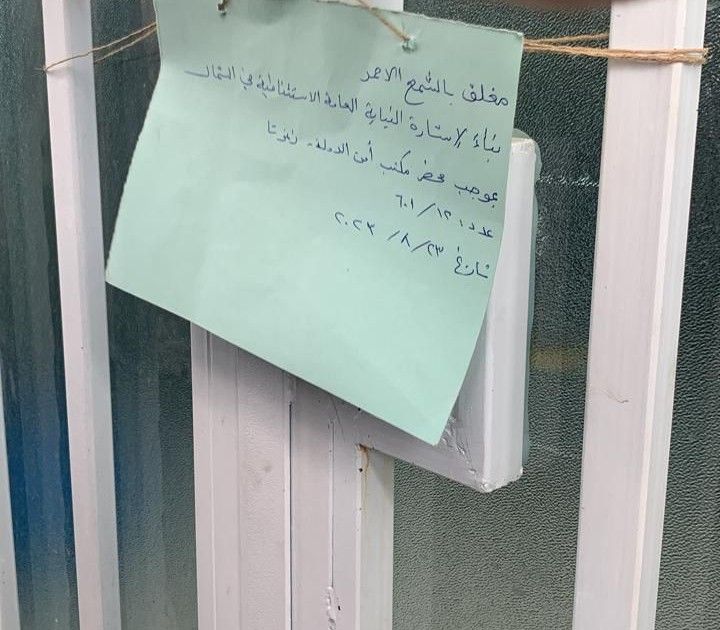 مغلق بالشمع الاحمر
بناءً لإستارة النيابة العامة الاستئنافية في الشمال
بموجب محضر مكتب أمن الدولة - زغرتا
عدد ١٢٠/ ٦٠١
تاريخ ٢٣/ ٨/ ٢٠٢٣